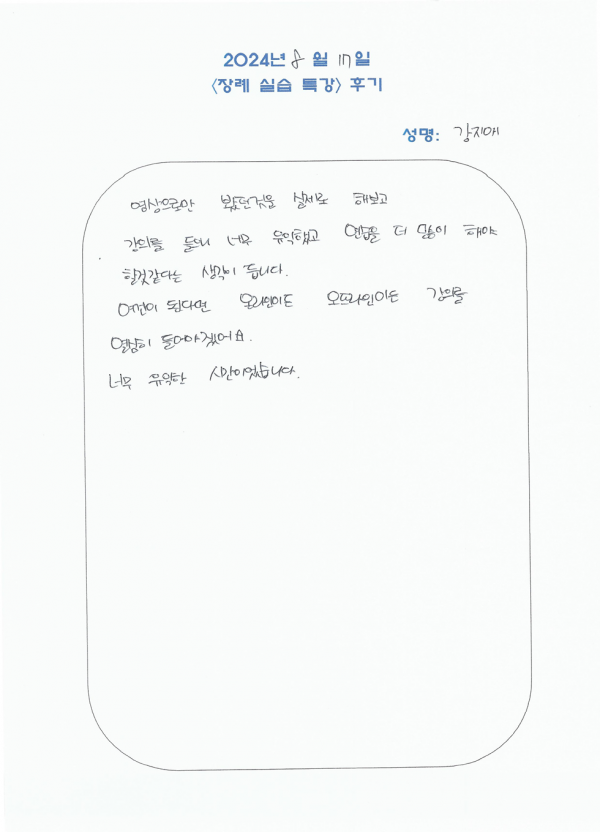 2024년 8 월 17일
<장례 실습 특강> 후기
성명: 강지애
영상으로만 봤던것을 실제로 해보고
강의를 들으니 너무 유익했고 연습을 더 많이 해야
할것같다는 생각이 듭니다.
여건이 된다면 온라인이든 오프라인이든 강의를
열심히 들어야겠어요.
너무 유익한 시간이었습니다.